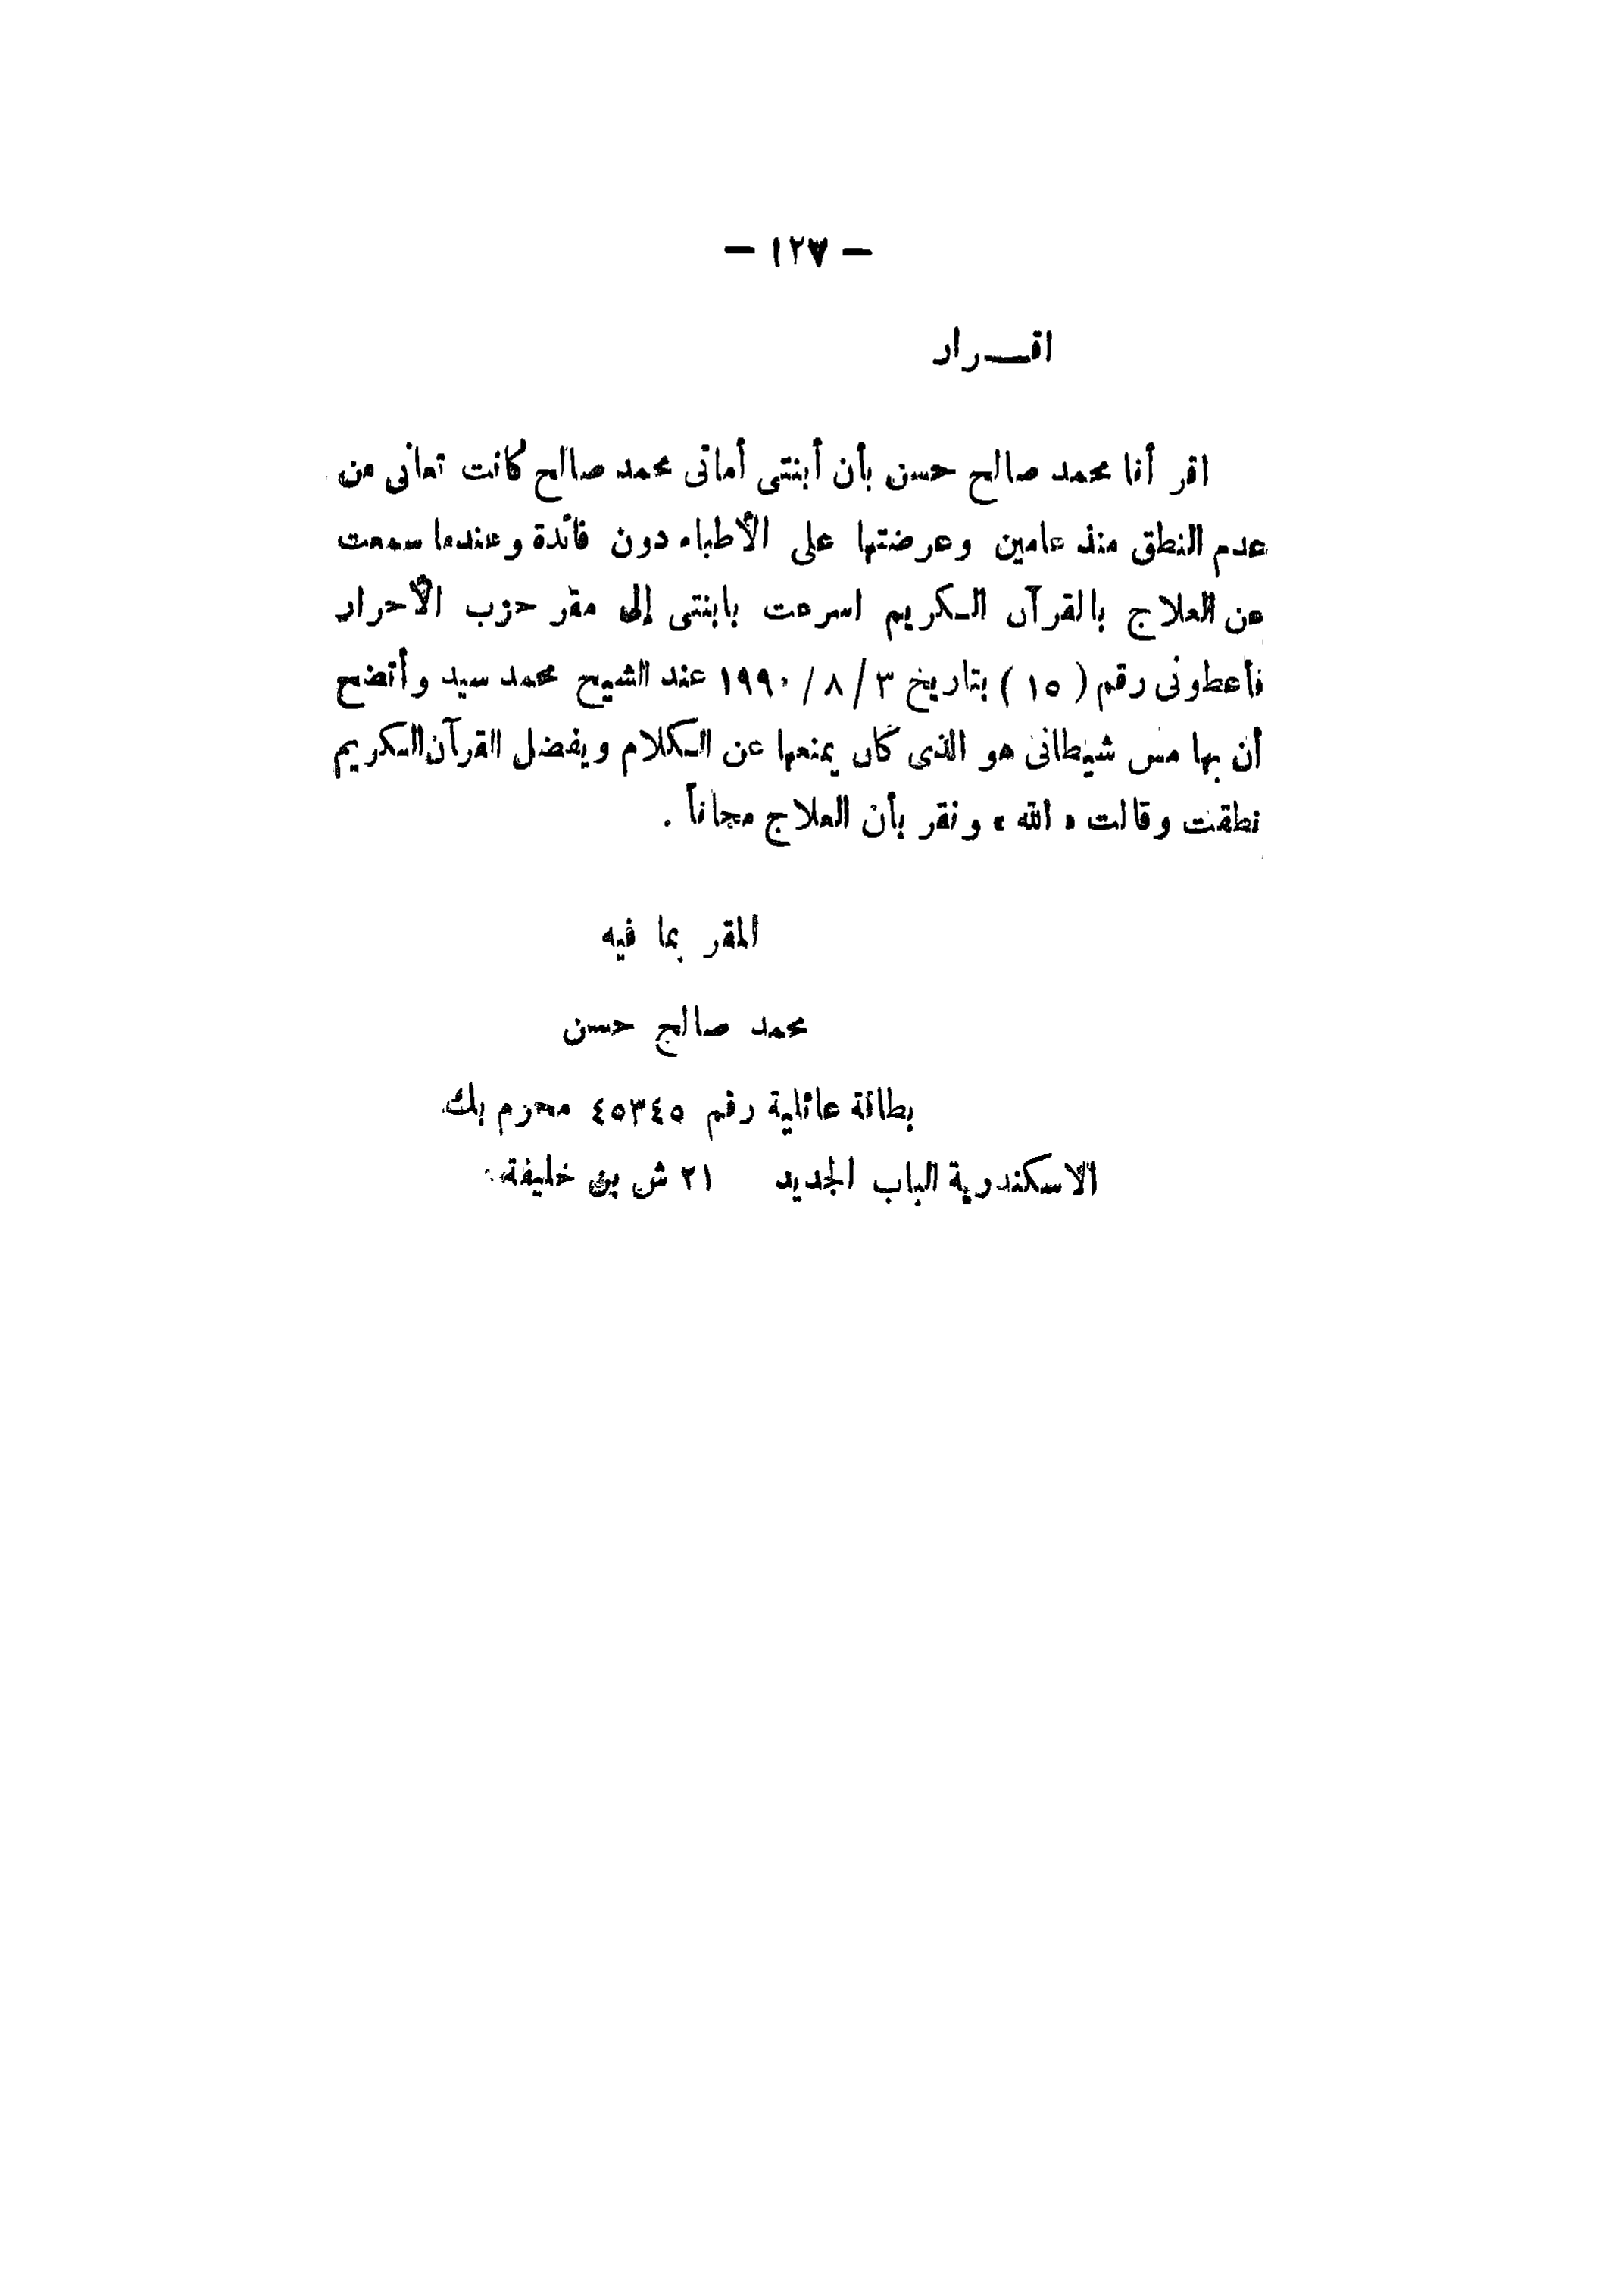 — ١٢٧ —
اقـــرار
اقر أنا محمد صالح حسن بأن أبنتى أمانى محمد صالح كانت تعانى من
عدم النطق منذ عامين وعرضتها على الأطباء دون فائدة وعندما سمعت
عن العلاج بالقرآن الكريم اسرعت بابنتى إلى مقر حزب الأحرار
فأعطونى رقم ( ١٥ ) بتاريخ ٣ / ٨ / ١٩٩٠ عند الشيخ محمد سيد وأتضح
أن بها مس شيطانى هو الذى كان يمنعها عن الكلام ويفضل القرآن الكريم
نطقت وقالت « الله » ونقر بأن العلاج مجاناً .
المقر بما فيه
محمد صالح حسن
بطاقة عائلية رقم ٤٥٣٤٥ محرم بك
الاسكندرية الباب الجديد ٢١ ش بن خليفة